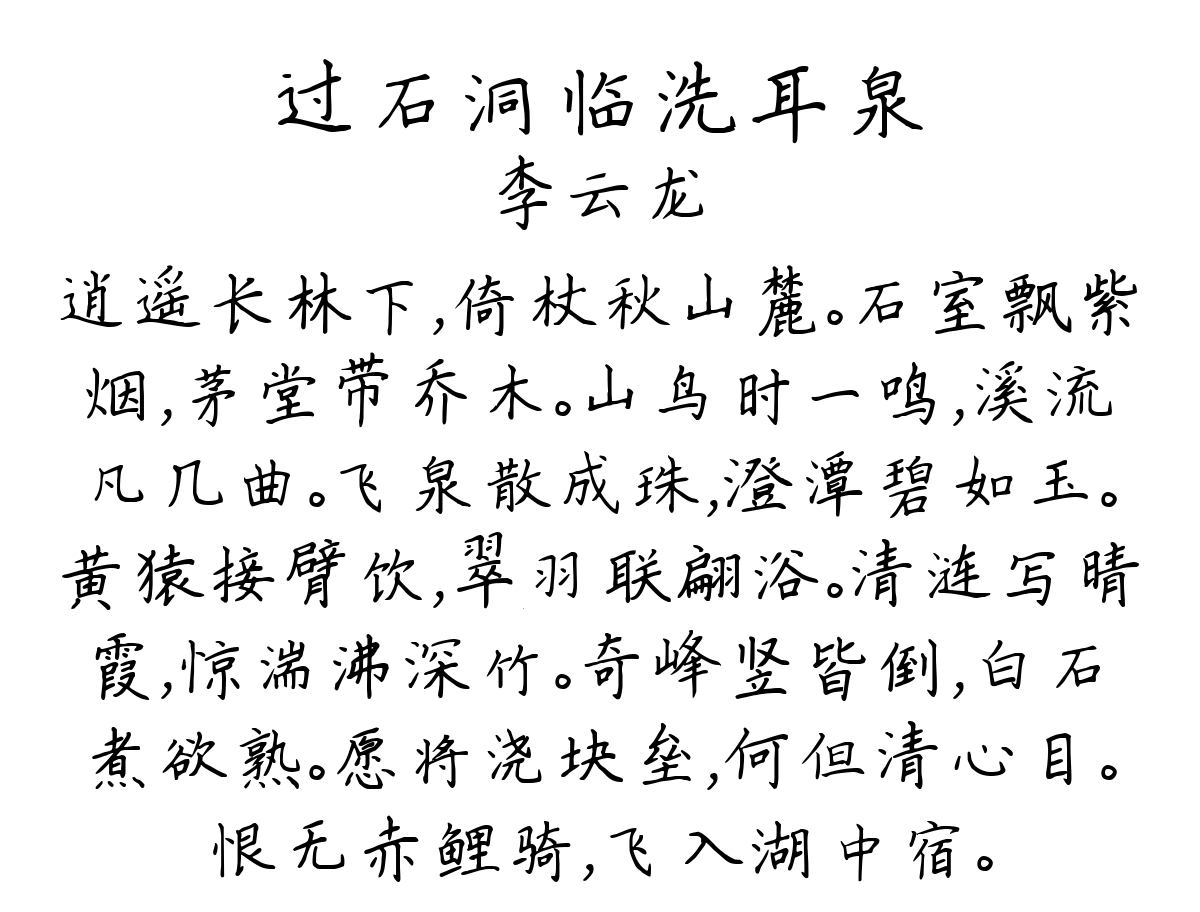 过石洞临洗耳泉
李云龙
逍遥长林下,倚杖秋山麓。石室飘紫
烟,茅堂带乔木。山鸟时一鸣,溪流
凡几曲。飞泉散成珠,澄潭碧如玉。
黄猿接臂饮,翠羽联翩浴。清涟写晴
霞,惊湍沸深竹。奇峰竖皆倒,白石
煮欲熟。愿将浇块垒,何但清心目。
恨无赤鲤骑,飞入湖中宿。